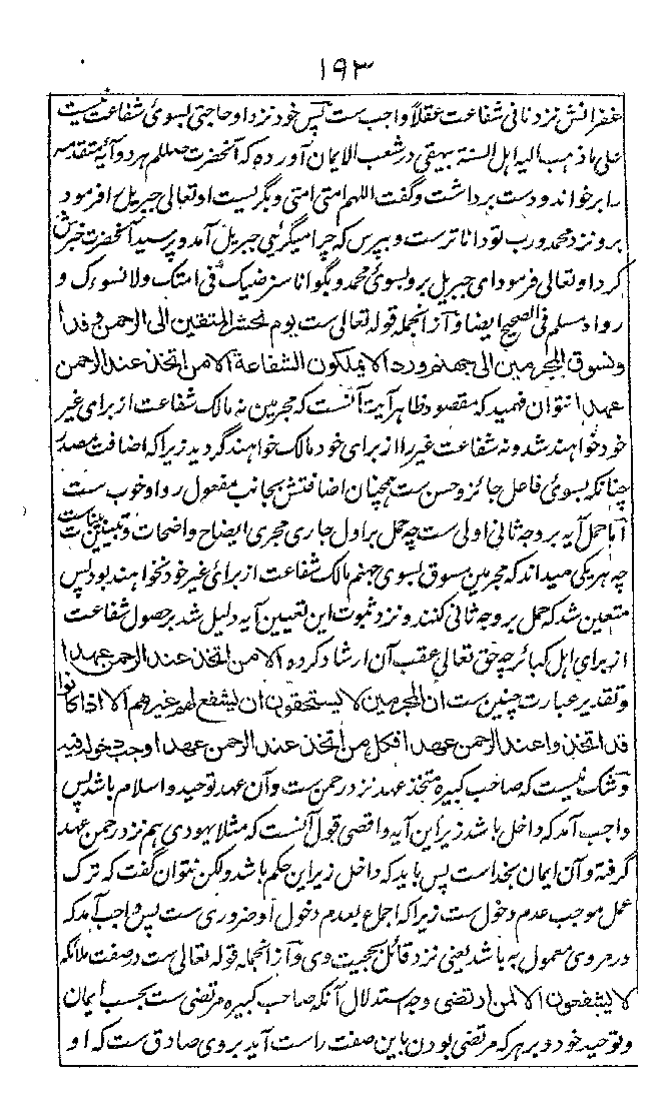 ۱۹۳
غفرانش نزد نافی شفاعت عقلاً واجب ست پس خود نزد او حاجتی بسوی شفاعت نیست
علی ما ذهب الیه اهل السنة بیهقی در شعب الایمان آورده که آنحضرت صلعم هر دو آیهٔ متقدمه
را برخواند و دست برداشت و گفت اللهم امتی امتی و بگریست او تعالی جبریل را فرمود
برو نزد محمد و رب تو داناتر ست و بپرس که چرا میگریی جبریل آمد و پرسید آنحضرت خبرش
کرد او تعالی فرمود ای جبریل برو بسوی محمد و بگو انا سنرضیک فی امتک ولا نسوءک و
رواه مسلم فی الصحیح ایضا و از آنجمله قوله تعالی ست یوم نحشر المتقین الی الرحمن وفدا
ونسوق المجرمین الی جهنم وردا لا یملکون الشفاعة الا من اتخذ عند الرحمن
عهدا نتوان فهمید که مقصود ظاهر آیة آنست که مجرمین نه مالک شفاعت از برای غیر
خود خواهند شد و نه شفاعت غیر را از برای خود مالک خواهند گردید زیرا که اضافت مصدر
چنانکه بسوی فاعل جائز و حسن ست همچنان اضافتش بجانب مفعول روا و خوب ست
آما حمل آیه بر وجه ثانی اولی ست چه حمل بر اول جاری مجری ایضاح واضحات و تبیین بینات ست
چه هر یکی میداند که مجرمین مسوق بسوی جهنم مالک شفاعت از برای غیر خود نخواهند بود پس
متعین شد که حمل بر وجه ثانی کنند و نزد ثبوت این تعیین آیه دلیل شد بر حصول شفاعت
از برای اهل کبائر چه حق تعالی عقب آن ارشاد کرده الا من اتخذ عند الرحمن عهدا
و تقدیر عبارت چنین ست ان المجرمین لا یستحقون ان یشفع لهم غیرهم الا اذا کانوا
قد اتخذوا عند الرحمن عهدا فکل من اتخذ عند الرحمن عهدا وجب دخوله فیه
و شک نیست که صاحب کبیره متخذ عهد نزد رحمن ست و آن عهد توحید و اسلام باشد پس
واجب آمد که داخل باشد زیر این آیه و اقصی قول آنست که مثلا یهودی هم نزد رحمن عهد
گرفته و آن ایمان بخداست پس باید که داخل زیر این حکم باشد ولکن نتوان گفت که ترک
عمل موجب عدم دخول ست زیرا که اجماع بعدم دخول او ضروری ست پس واجب آمد که
در مروی معمول به باشد یعنی نزد قائل بحجیت وی و از آنجمله قوله تعالی ست در صفت ملائکه
لا یشفعون الا لمن ارتضی وجه استدلال آنکه صاحب کبیره مرتضی ست بحسب ایمان
و توحید خود و بر هر که مرتضی بودن باین صفت راست آید بر وی صادق ست که او